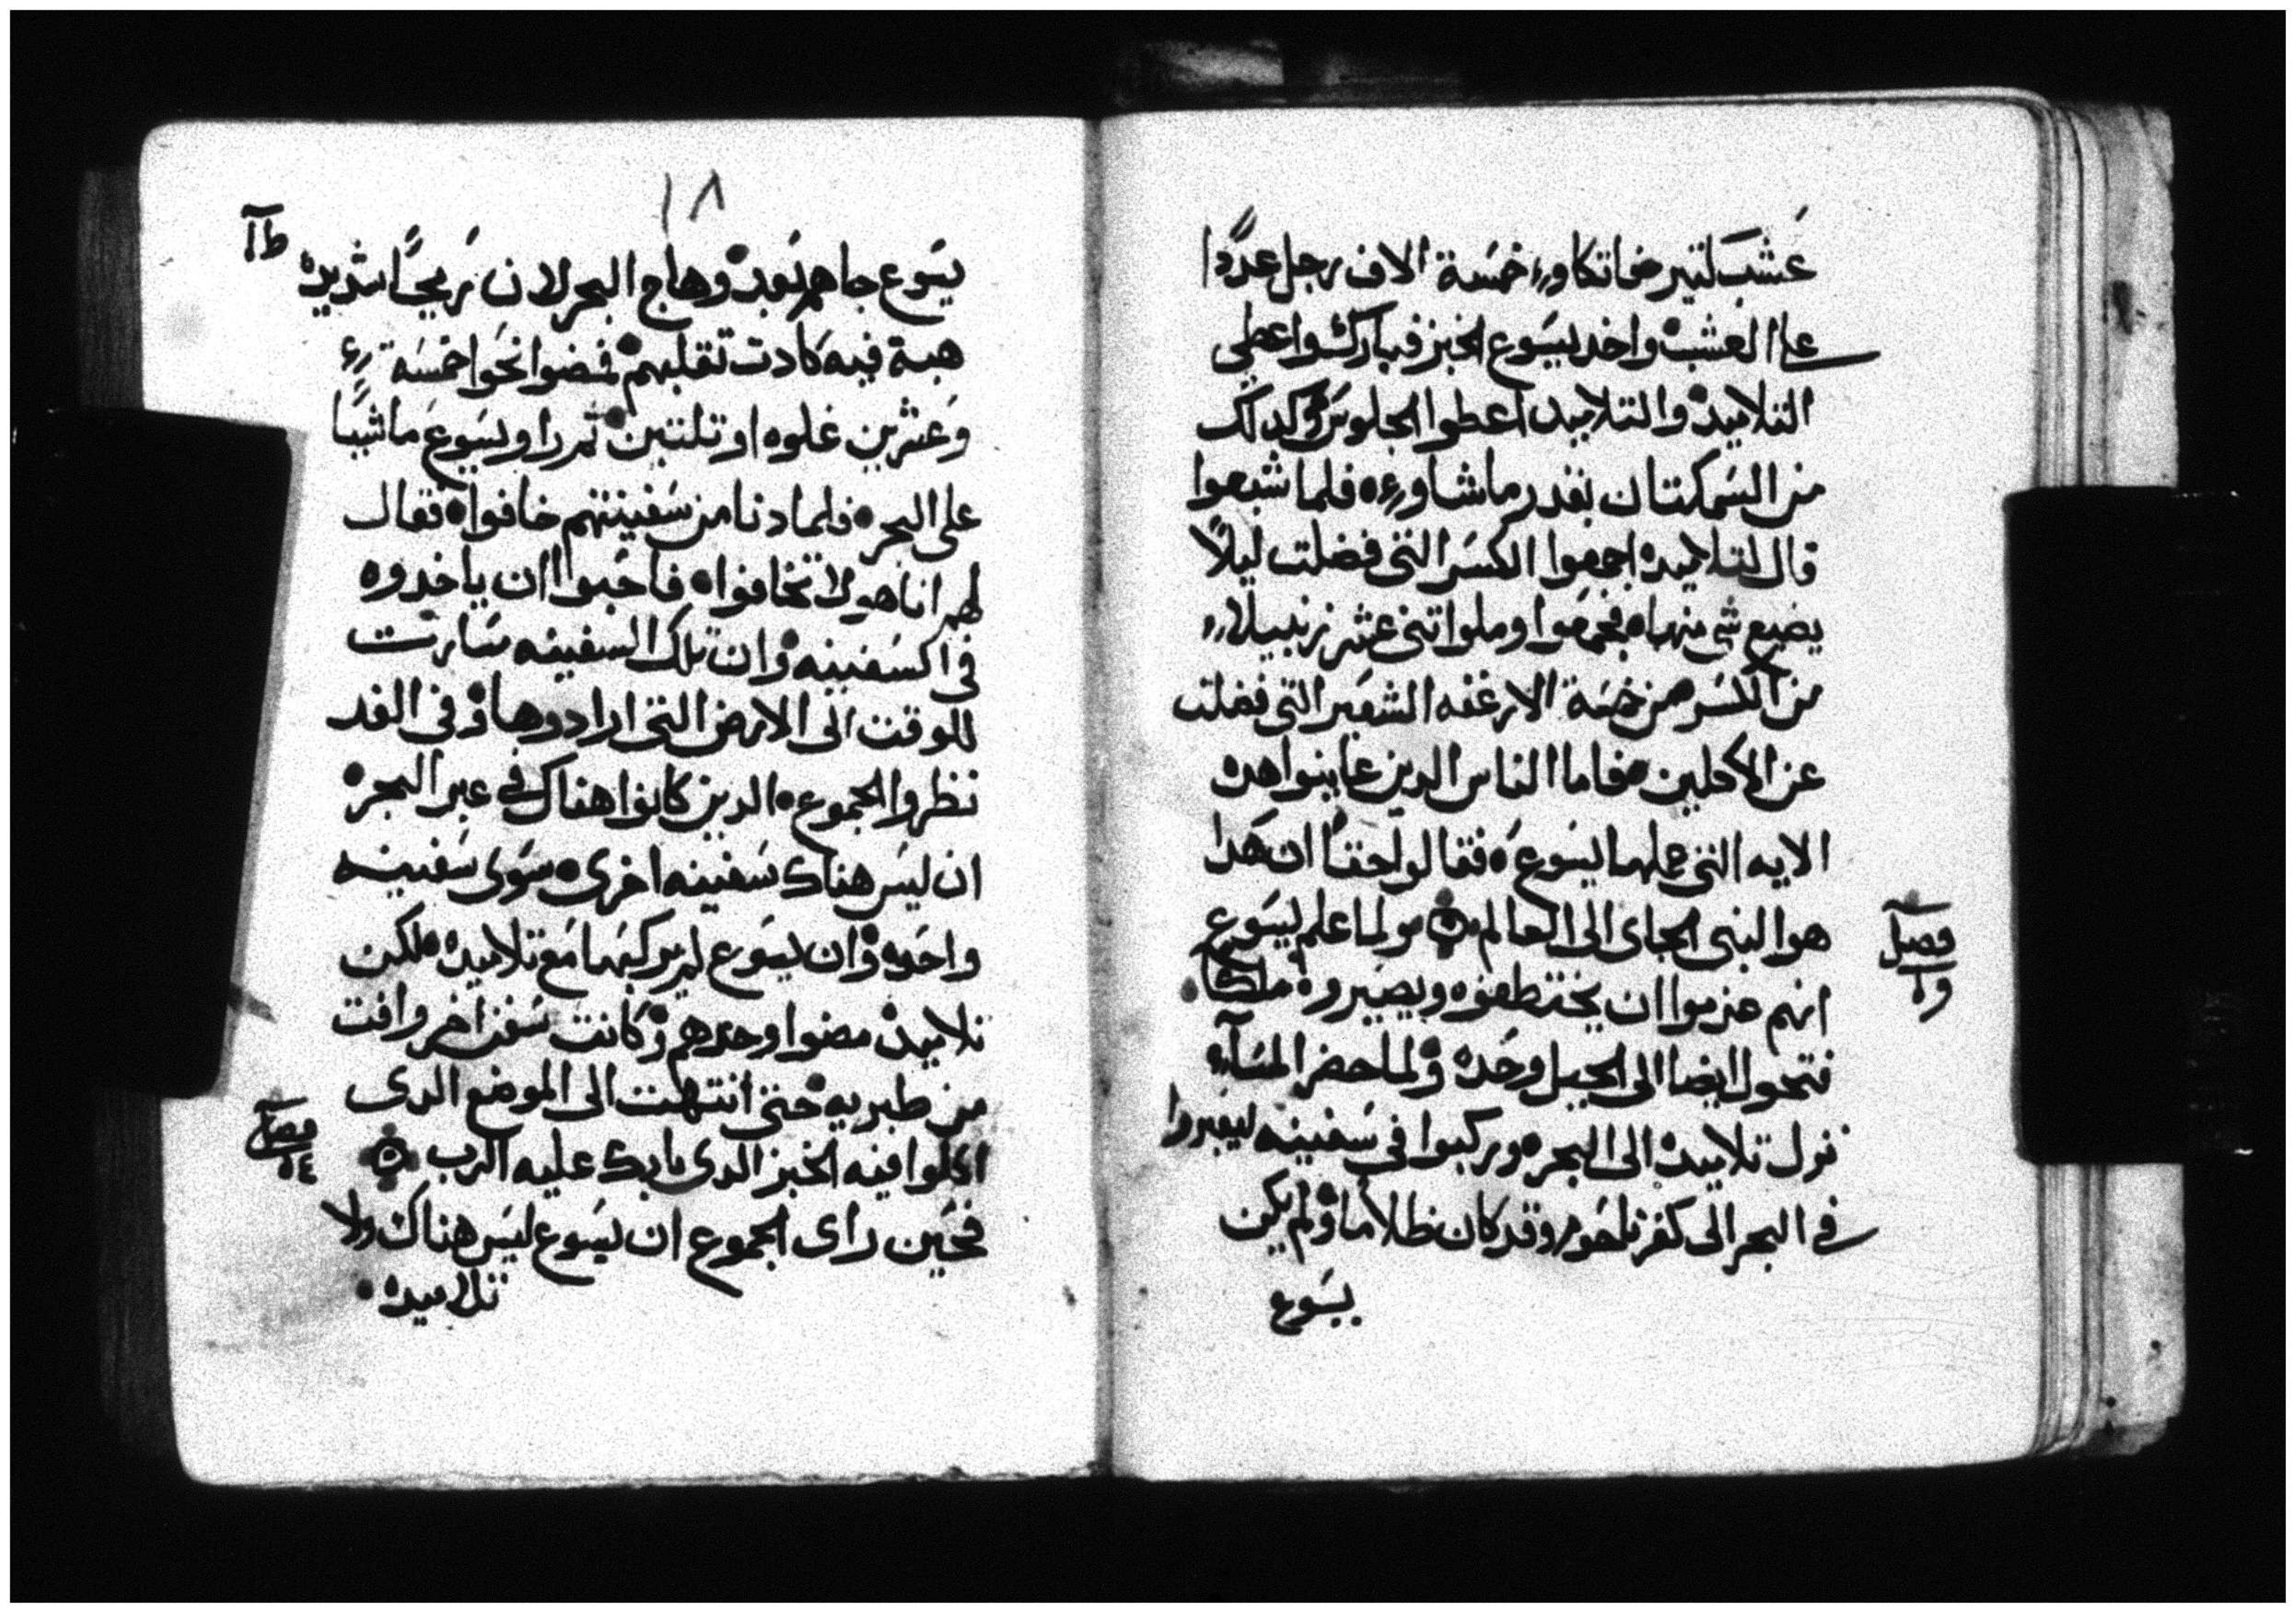 عشب لتير فاتكاوء خمسة الاف رجل عددا
علي العشب واخد يسوع الخبز فبارك واعطي
التلاميد والتلاميد اعطوا الجلوس وكدلك
من السمكتان بقدر ما شاوء فلما شبعوا
قال لتلاميده اجمعوا الكسر التي فضلت ليلاً
يضيع شي منها فجمعوا وملوا اتني عشر زنبيلا
من الكسر من خمسة الارغفه الشعير التي فضلت
عن الاكلين فاما الناس الدين عاينوا هده
الايه التي عملها يسوع فقالوا حقاً ان هدا
هوا النبي الجاى الى العالم ولما علم يسوع
فصل
١٥
انهم عزموا ان يختطفوه ويصيروه ملكا
فتحول ايضا الى الجبل وحده ولما حضر المسآء
نزل تلاميده الى البحر وركبوا في سفينه ليعبروا
في البحر الى كفرناحوم وقد كان ظلاما ولم يكن
يسوع
١٨
يسوع جاهم بعد وهاج البحر لان ريحاً شديده
هبة فيه كادت تقلبهم فمضوا نحوا خمسة
وعشرين غلوه او تلتين تم راو يسوع ماشياً
على البحر فلما دنا من سفينتهم خافوا فقال
لهم انا هو لا تخافوا فاحبوا ان ياخدوه
في السفينه وان تلك السفينه سارت
للوقت الى الارض التي ارادوها وفي الغد
نظروا الجموع الدين كانوا هناك في عبر البحر
ان ليس هناك سفينه اخرى سوى سفينه
واحده وان يسوع لم يركبها مع تلاميده لكن
تلاميده مضوا وحدهم وكانت سفن اخر وافت
من طبريه حتى انتهت الى الموضع الدى
اكلوا فيه الخبز الدى بارك عليه الرب
فحين راى الجموع ان يسوع ليس هناك ولا
تلاميده